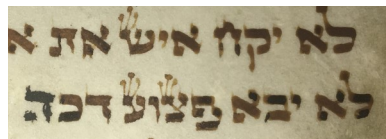 לא יקח איש את א
לא יבא פצוע דכה